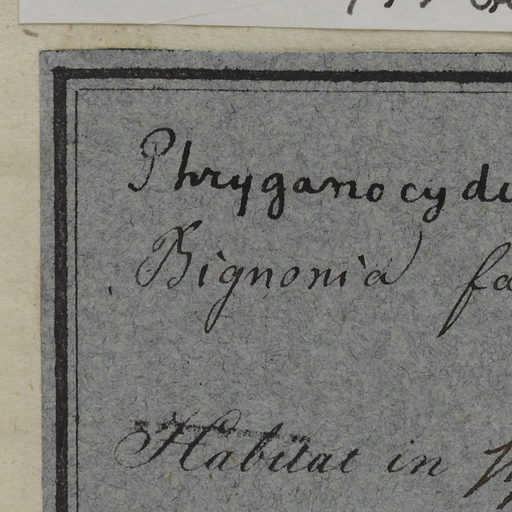 Phryganocyd
Bignonia fa
Habitat in